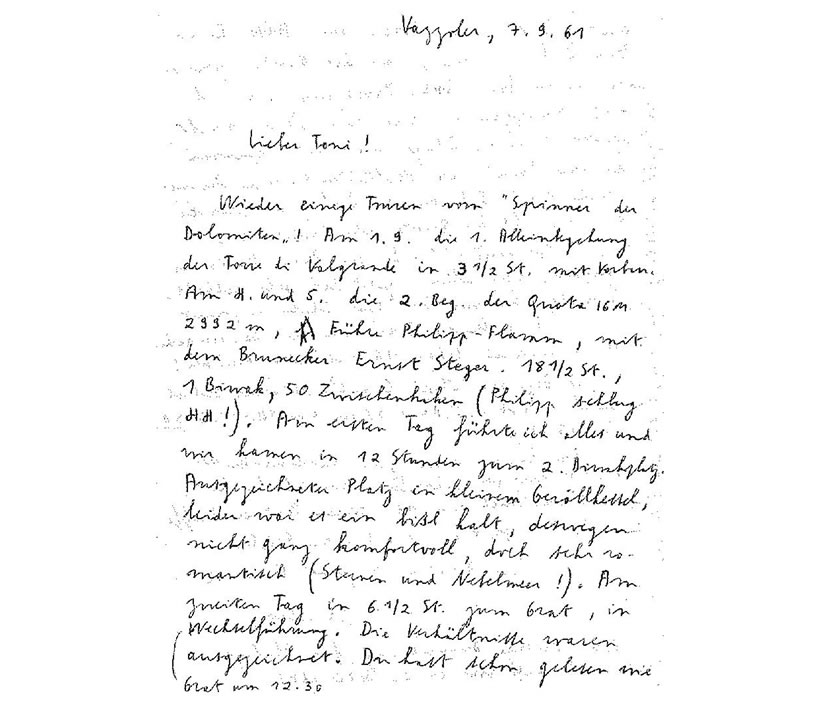 Vazzoler, 7.9.61
Lieber Toni!
Wieder einige Touren vom "Spinner der
Dolomiten"! Am 1.9. die 1. Alleinbegehung
der Torre di Valgrande in 3 1/2 St. mit
Am 4. und 5. die 2. Beg. der Quota IGM
2992 m, Führe Philipp-Flamm, mit
dem Brunecker Ernst Steger. 18 1/2 St.,
1 Biwak, 50 Zwischenhaken (Philipp schlug
44!). Am ersten Tag führte ich alles und
wir kamen in 12 Stunden zum 2. Biwakplatz.
Ausgezeichneter Platz in kleinem Geröllkessel,
leider war es ein bißl kalt, deswegen
nicht ganz komfortvoll, doch sehr ro-
mantisch (Sternen und Nebelmeer!). Am
zweiten Tag in 6 1/2 St. zum Grat, in
Wechselführung. Die Verhältnisse waren
ausgezeichnet. Du hast schon gelesen wie
(Grat um 12.30